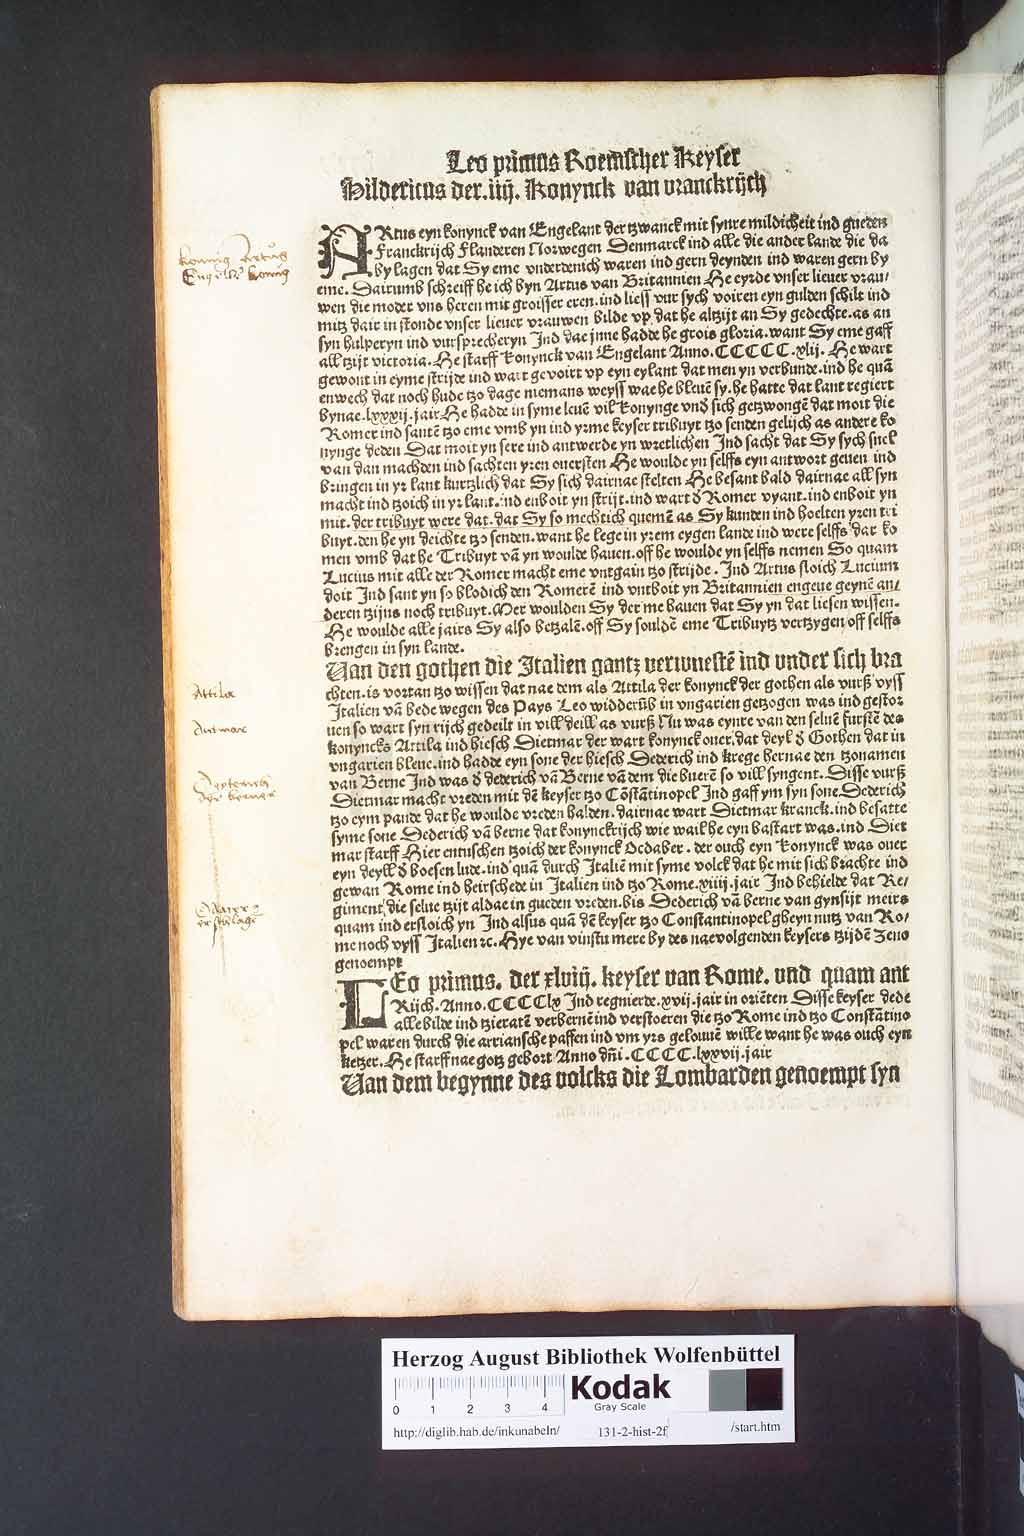 Leo primus Roemscher Keyser
Hildericus der .iiij. Konynck van vranckrijch
ARtus eyn konynck van Engelant der tzwanck mit synre mildicheit ind gueden
Franckrijch Flanderen Norwegen Denmarck ind alle die ander lande die da
by lagen dat Sy eme vnderdenich waren ind gern deynden ind waren gern by
eme. Dairumb schreiff he ich byn Artus van Britannien He eyrde vnser lieuer vrau/
wen die moder vns heren mit groisser eren. ind liess vur sych voiren eyn gulden schilt ind
mitz dair in stonde vnser lieuer vrauwen bilde vp dat he altzijt an Sy gedechte. as an
syn hulperyn ind vursprecheryn Ind dae jnne hadde he grois gloria. want Sy eme gaff
all tzijt victoria. He starff konynck van Engelant Anno. CCCCC.xlij. He wart
gewont in eyme strijde ind wart gevoirt vp eyn eylant dat men yn verbunde. ind he quā
enwech dat noch hude tzo dage niemans weyss wae he bleuē sy. he hatte dat lant regiert
bynae .lxxxij. jair He hadde in syme leuē vil konynge vnd sich getzwongē dat moit die
Romer ind santē tzo eme vmb yn ind yrme keyser tribuyt tzo senden gelijch as andere ko
nynge deden Dat moit yn sere ind antwerde yn wretlichen Ind sacht dat Sy sych snel
van dan machden ind sachten yren ouersten He woulde yn selffs eyn antwort geuen ind
bringen in yr lant kurtzlich dat Sy sich dairnae stelten He besant bald dairnae all syn
macht ind tzoich in yr lant. ind enboit yn strijt. ind wart d Romer vyant. ind enboit yn
mit. der tribuyt were dat. dat Sy so mechtich quemē as Sy kunden ind hoelten yren tri
buyt. den he yn deichte tzo senden. want he lege in yrem eygen lande ind were selffs dar ko
men vmb dat he Tribuyt vā yn woulde hauen. off he woulde yn selffs nemen So quam
Lucius mit alle der Romer macht eme vntgain tzo strijde. Ind Artus sloich Lucium
doit Ind sant yn so blodich den Romerē ind vntboit yn Britannien engeue geynē an/
deren tzijns noch tribuyt. Mer woulden Sy der me hauen dat Sy yn dat liesen wissen.
He woulde alle jairs Sy also betzalē. off Sy souldē eme Tribuytz vertzygen off selffs
brengen in syn lande.
Uan den gothen die Italien gantz verwuestē ind vnder sich bra
chten. is vortan tzo wissen dat nae dem als Attila der konynck der gothen als vurß vyss
Italien vā bede wegen des Pays Leo widderūb in vngarien getzogen was ind gestor
uen so wart syn rijch gedeilt in vill deill as vurß Nu was eynre van den seluē furstē des
konyncks Attila ind hiesch Dietmar der wart konynck ouer. dat deyl d Gothen dat in
vngarien bleue. ind hadde eyn sone der hiesch Dederich ind krege hernae den tzonamen
van Berne Ind was d dederich vā Berne vā dem die buerē so vill syngent. Disse vurß
Dietmar macht vreden mit dē keyser tzo Cōstātinopel Ind gaff ym syn sone. Dederich
tzo eym pande dat he woulde vreden halden. dairnae wart Dietmar kranck. ind besatte
syme sone Dederich vā berne dat konynckrijch wie wail he eyn bastart was. ind Diet
mar starff Hier entuschen tzoich der konynck Ocdaber. der ouch eyn konynck was ouer
eyn deyll d boesen lude. ind quā durch Italiē mit syme volck dat he mit sich brachte ind
gewan Rome ind heirschede in Italien ind tzo Rome. xiiij. jair Ind behielde dat Re/
giment die selue tzijt aldae in gueden vreden. bis Dederich vā berne van gynsijt meirs
quam ind ersloich yn Ind alsus quā dē keyser tzo Constantinopel gheyn nutz van Ro/
me noch vyss Italien ⁊c. Hye van vinstu mere by des naevolgenden keysers tzijdē Zeno
genoempt
LEo primus. der xlviij. keyser van Rome. vnd quam ant
Rijch. Anno. CCCClx Ind regnierde. xvij. jair in oriēten Disse keyser dede
alle bilde ind tzieratē verbernē ind verstoeren die tzo Rome ind tzo Constātino
pel waren durch die arriansche paffen ind vm yrs gelouuē wille want he was ouch eyn
ketzer. He starff nae gotz gebort Anno dñi. CCCC.lxxvij. jair
Uan dem begynne des volcks die Lombarden genoempt syn
konnig Artus
Engelā konig
Attila
Dietmar
Herzog August Bibliothek Wolfenbüttel
0 1 2 3 4
Kodak
Gray Scale
http://diglib.hab.de/inkunabeln/ 131-2-hist-2f /start.htm